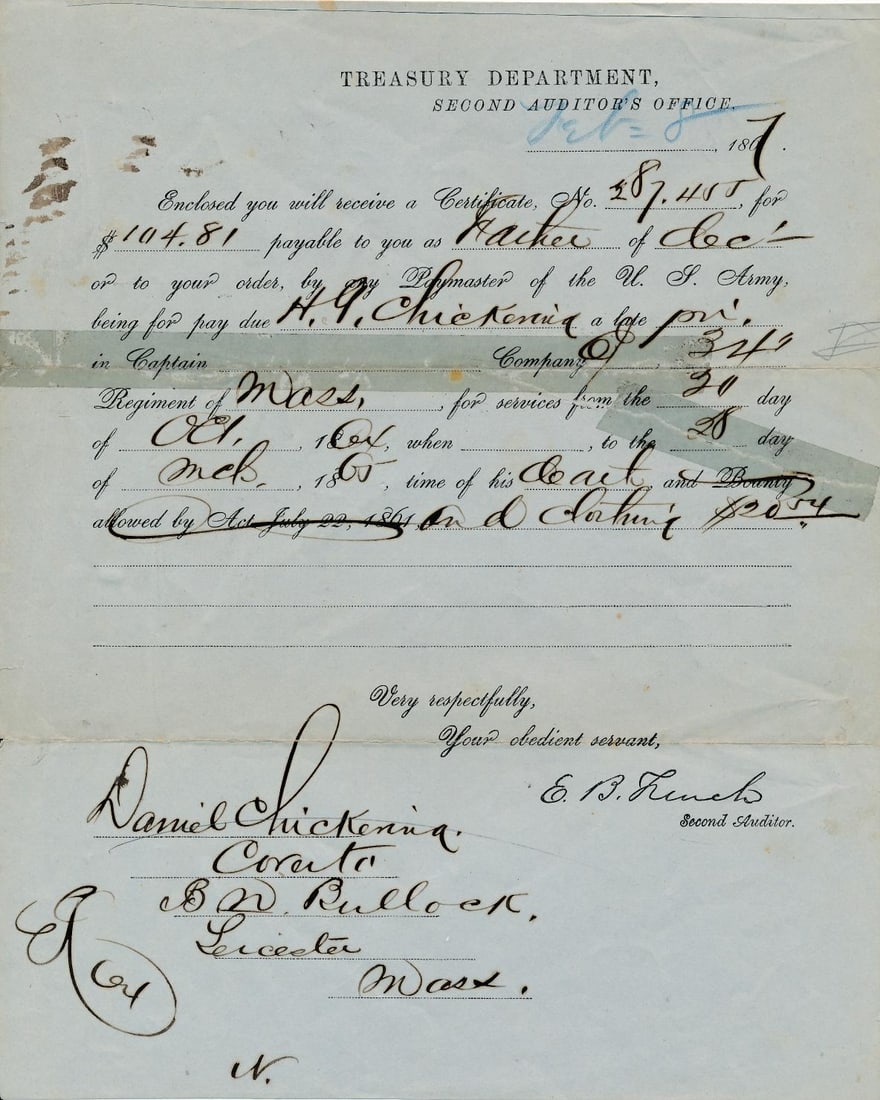 TREASURY DEPARTMENT,
SECOND AUDITOR'S OFFICE.
Feb 8, 1867.
Enclosed you will receive a Certificate, No. 287.455, for
$104.81 payable to you as Father of Dec'
or to your order, by any Paymaster of the U. S. Army,
being for pay due H. G. Chickering a late pri.
in Captain Company G, 34"
Regiment of Mass, for services from the day
of Oct., 1864, when, to the 28 day
of Mch., 1865, time of his death, and Bounty
allowed by Act July 22, 1861, and clothing $20 54
Very respectfully,
Your obedient servant,
E. B. French
Second Auditor.
Daniel Chickering.
Care of
B N Bullock,
Leicester
Mass.
64
N.